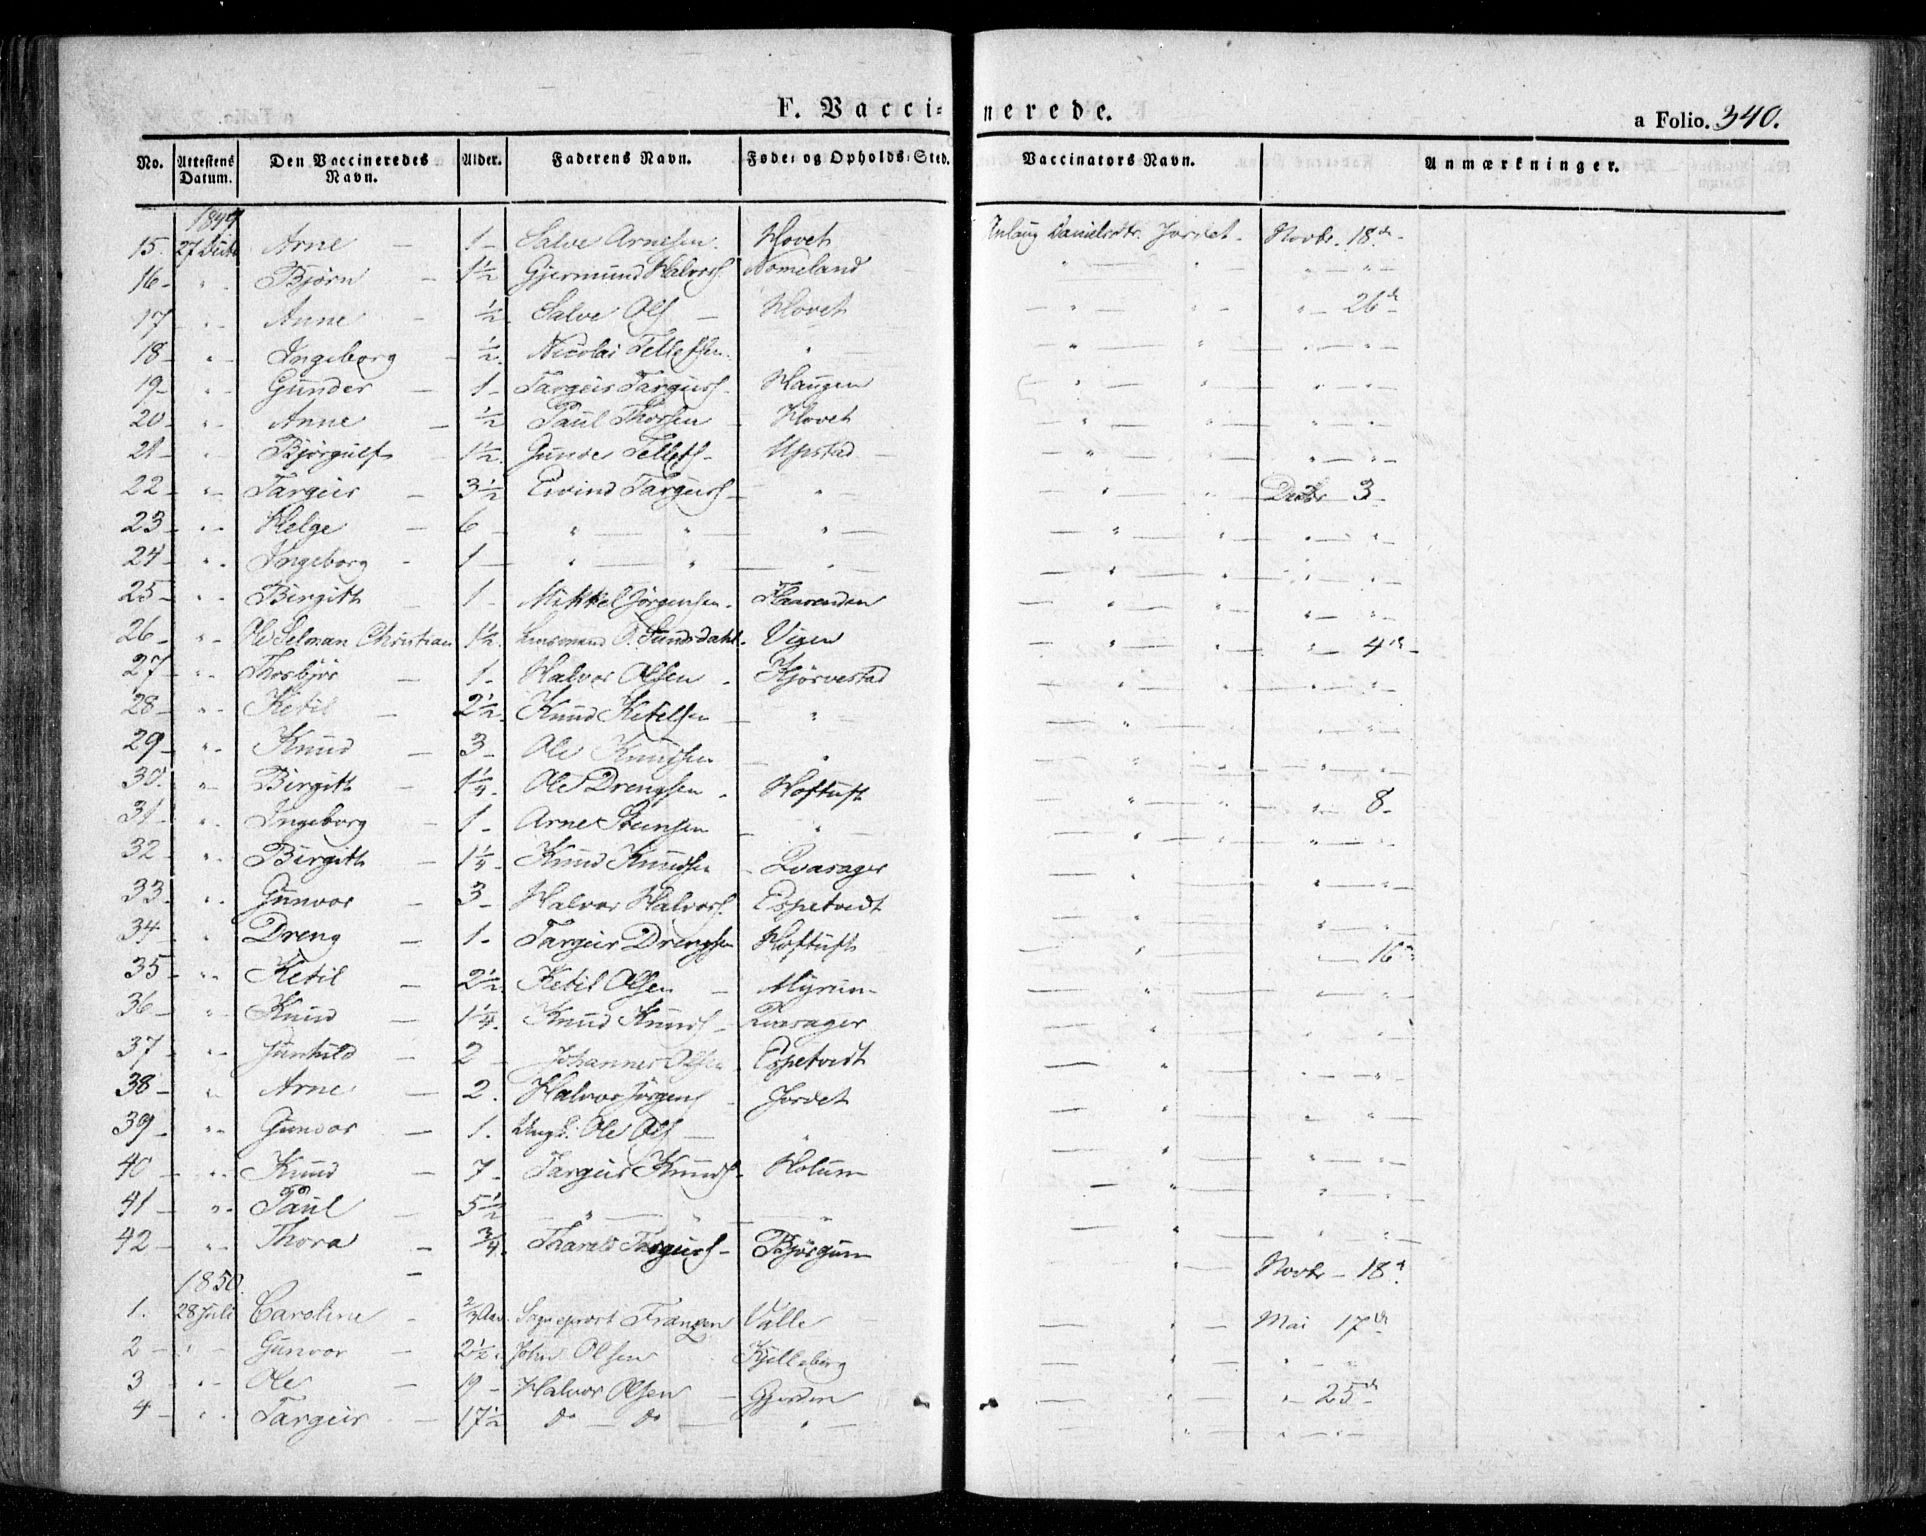 F. Vaccinerede.
a Folio. 340.
No. Attestens Datum. Den Vaccineredes Navn. Alder. Faderens Navn. Føde- og Opholds-Sted. Vaccinators Navn. Anmærkninger.
1849
15. 27 Decbr Arne — 1 — Salve Arnesen. Hovet Danielsdtr. Jordet. Novbr. 18de
16 " Bjørn — 1½ Gjermund Halvors. Nomeland " " " "
17 " Anne — ½. Salve Ols — Hovet " " " 26de
18 " Ingeborg ½. Nicolai Tellefsen. " " " " "
19 " Gunder — 1 — Targeir Targeirs. Haugen " " " "
20 " Anne — ½ Paul Thorsen Hovet " " " "
21 " Bjørgulf 1½. Gunder Tellefs. Upstad " " " "
22 " Targeir — 3½ Eivind Targeirs. " " " Decbr 3
23 " Helge — 6 — " " " " " " "
24 " Ingeborg 1 — " " " " " " "
25 " Birgith 1 — Mikkel Jørgensen. " " " "
26 " Ole Selman Christian 1½. Sundsdahl. Vigen " " " 4de
27 " Thorbjør — 1. Halvor Olsen Kjørvestad " " " "
28 " Ketil — 2½. Knud Ketelsen " " " " "
29 " Knud — 3 — Ole Knudsen " " " " "
30. " Birgith — 1¼. Ole Drengsen Hoftuft " " " 8
31 " Ingeborg — 1 — Arne Steinsen " " " " "
32 " Birgith — 1¼ Knud Knudsen Qvasager " " " "
33 " Gunvor — 3 — Halvor Halvors. Espetvedt " " " "
34 " Dreng — 1. Targeir Drengsen Hoftuft " " " 16de
35 " Ketil — 2½. Ketil Olsen — Myrum " " " "
36 " Knud — 1¼. Knud Knuds. Qvasager " " " "
37 " Gunhild — 2 — Johannes Olsen Espetvedt " " " "
38 " Arne — 2. Halvor Jørgens Jordet " " " "
39 " Gunvor — 1. Ungk. Ole Ols — " " " " "
40 " Knud — 7 — Targeir Knuds. Holum " " " "
41 " Paul — 5½ " " " " " " "
42 " Thora — ¾. Targeirs. Bjørgum " Novbr — 18de
1850.
1. 28 Juli Caroline — ⅔ Aar. Sogneprest Frantzen Valle " " Mai 17de
2 " Gunvor — 2½. John Olsen Kjelleberg " " " "
3 " Ole — 19 — Halvor Olsen Gjerden " " " 25de
4 " Targeir — 17½ do — do — " " " " "